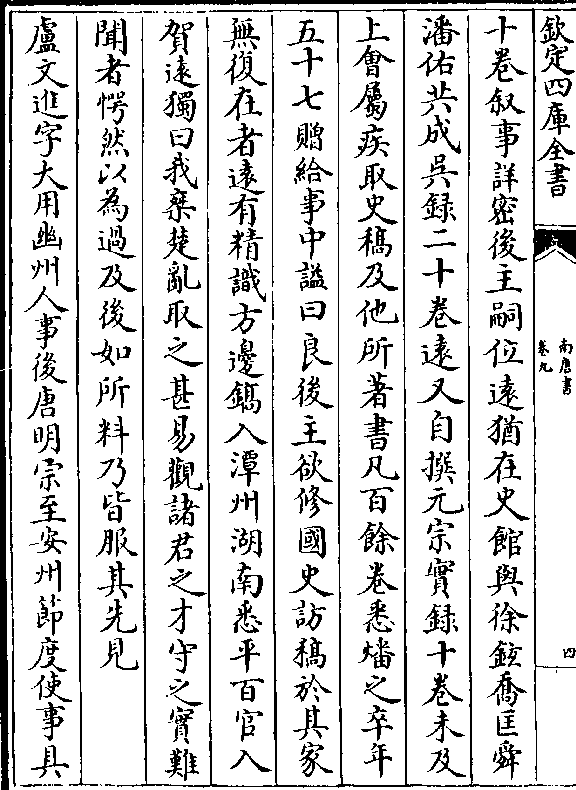 欽定四庫全書
南唐書
卷九
四
十卷叙事詳密後主嗣位遠猶在史館與徐鉉喬匡舜
潘佑共成吳録二十卷遠又自撰元宗實録十卷未及
上會屬疾取史稿及他所著書凡百餘卷悉燔之卒年
五十七贈給事中謚曰良後主欲修國史訪稿於其家
無復在者遠有精識方邊鎬入潭州湖南悉平百官入
賀遠獨曰我乗楚亂取之甚易觀諸君之才守之實難
聞者愕然以為過及後如所料乃皆服其先見
盧文進字大用幽州人事後唐明宗至安州節度使事具